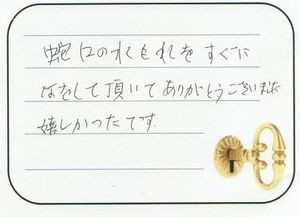 蛇口の水もれをすぐに
なをして頂いてありがとうございました
嬉しかったです